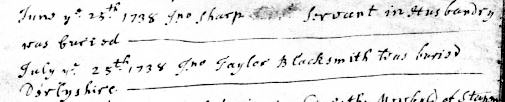 June ye 25th 1738 Jno Sharp Servant in Husbandry
was buried
July ye 25th 1738 Jno Taylor Blacksmith was buried
Derbyshire